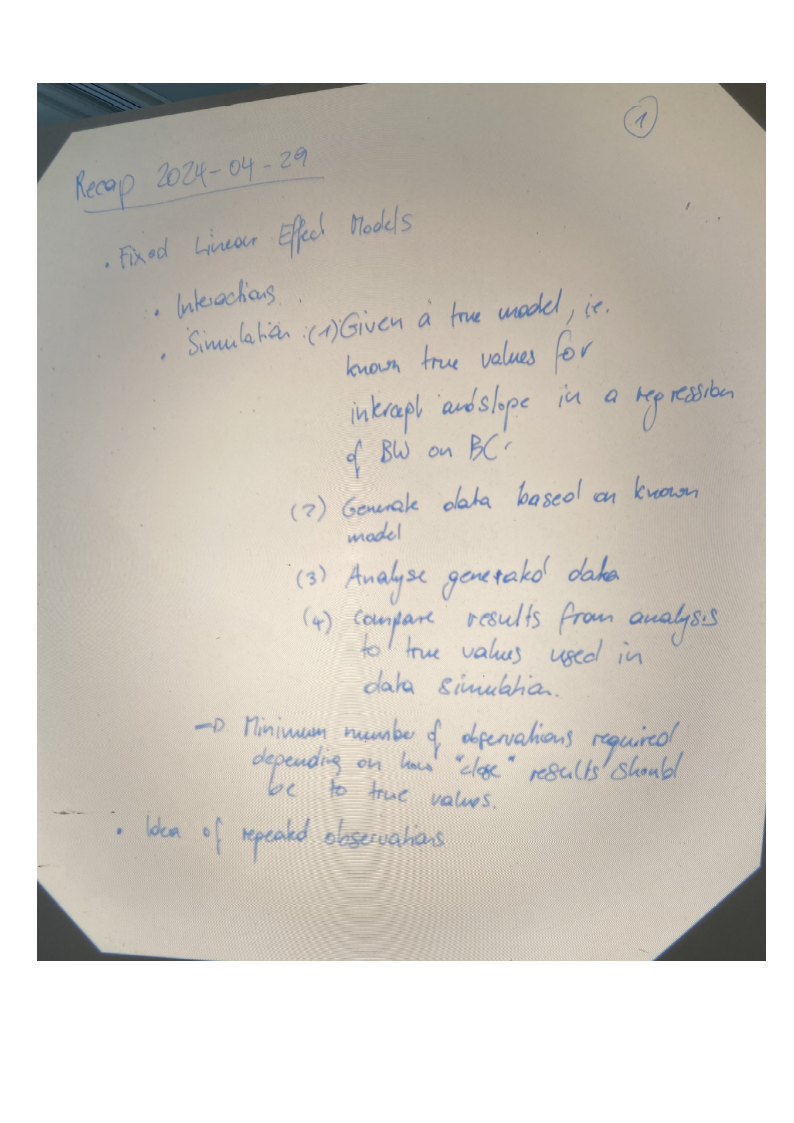 1
Recap 2024-04-29
• Fixed Linear Effect Models
• Interactions.
• Simulation: (1) Given a true model, i.e.
known true values for
intercept and slope in a regression
of BW on BC
(2) Generate data based on known
model
(3) Analyse generated data
(4) Compare results from analysis
to true values used in
data simulation.
→ Minimum number of observations required
depending on how "close" results should
be to true values.
• Idea of repeated observations